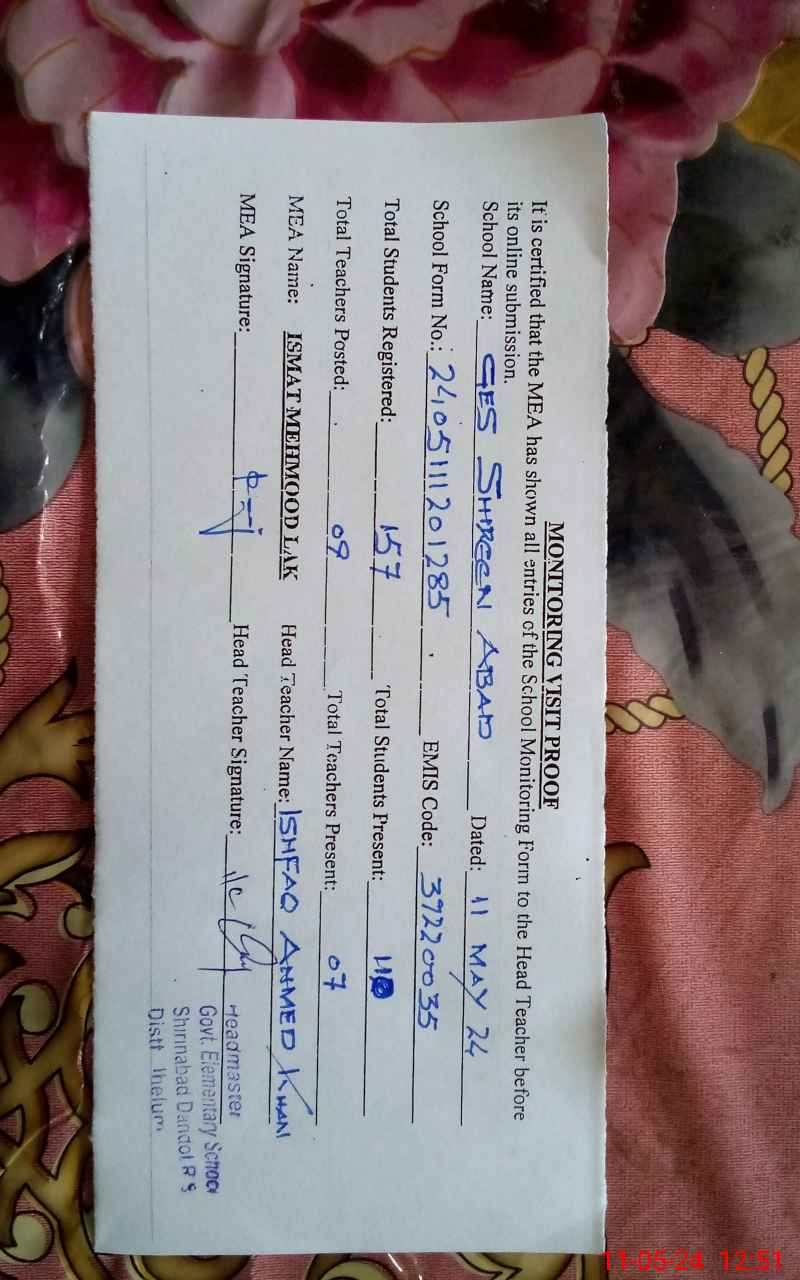 MONITORING VISIT PROOF
It is certified that the MEA has shown all entries of the School Monitoring Form to the Head Teacher before
its online submission.
School Name: GES SHREEN ABAD Dated: 11 MAY 24
School Form No.: 2405111201285 EMIS Code: 37220035
Total Students Registered: 157 Total Students Present:
Total Teachers Posted: 09 Total Teachers Present: 07
MEA Name: ISMAT MEHMOOD LAK Head Teacher Name: ISHFAQ AHMED KHAN
MEA Signature: Head Teacher Signature:
Headmaster
Govt. Elementary School
Shirinabad Dandot R S
Distt Jhelum
11-05-24 12:51